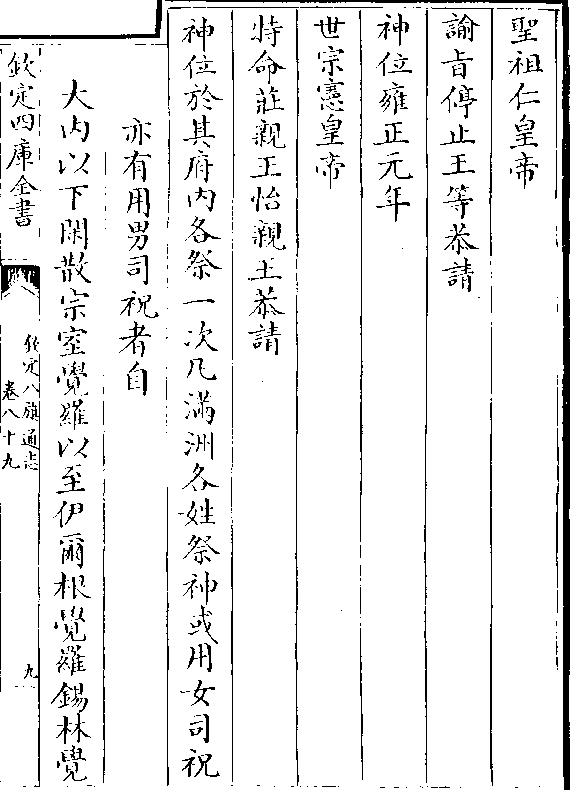 聖祖仁皇帝
諭㫖停止王等恭請
神位雍正元年
世宗憲皇帝
特命莊親王怡親王恭請
神位於其府内各祭一次凡滿洲各姓祭神或用女司祝
亦有用男司祝者自
大内以下閑散宗室覺羅以至伊爾根覺羅錫林覺
欽定四庫全書
欽定八旗通志
卷八十九
九